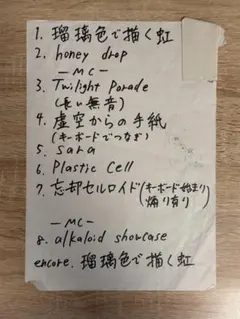 1. 瑠璃色で描く虹
2. honey drop
— MC —
3. Twilight Parade
(長い無音)
4. 虚空からの手紙
(キーボードでつなぎ)
5. sara
6. Plastic Cell
7. 忘却セルロイド(キーボード始まり
煽り有り)
— MC —
8. alkaloid showcase
encore. 瑠璃色で描く虹